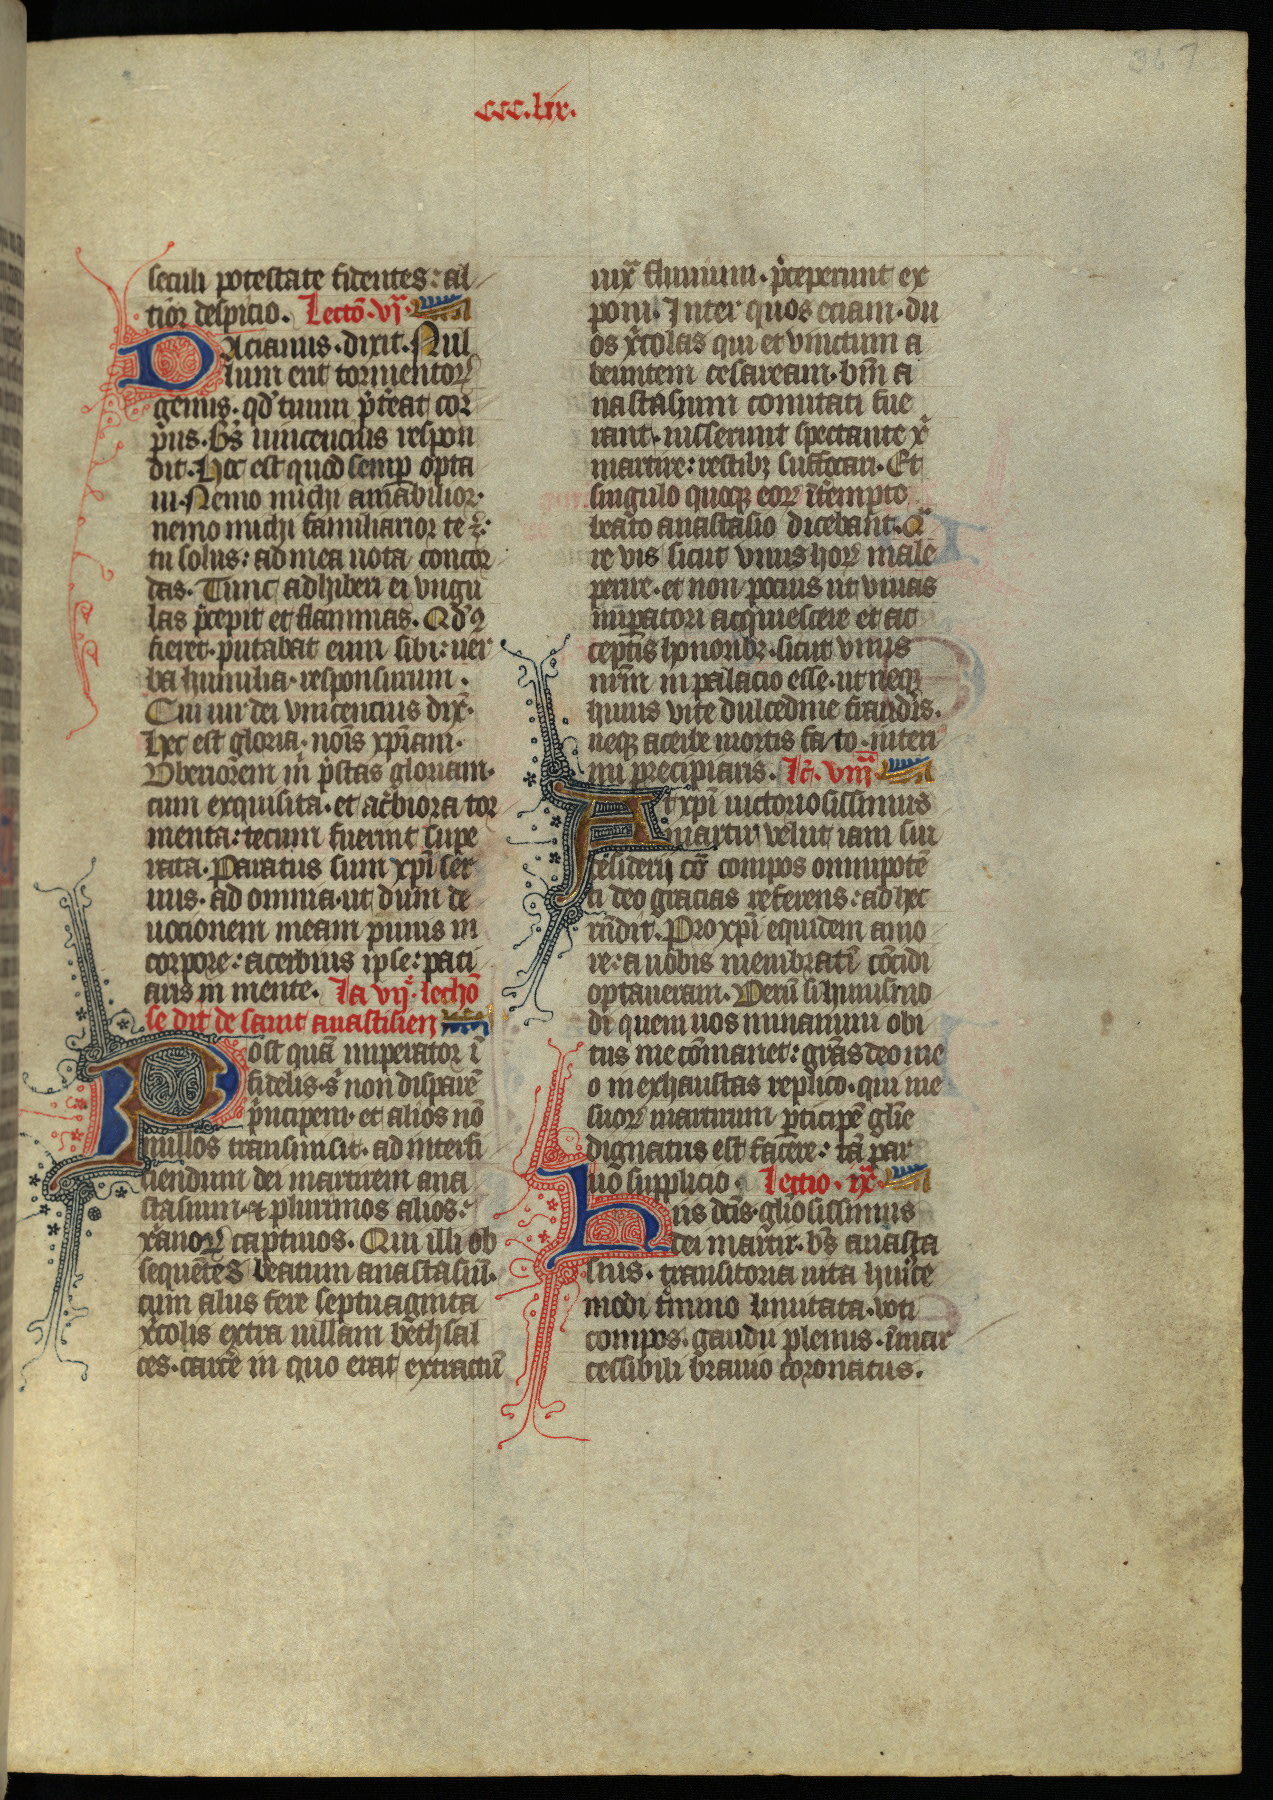 367
ccc.lix.
seculi potestate fidentes: al
tior despicio. Lectō. vj.ª
Dacianus. dixit. Nul
lum erit tormentoꝝ
genus. qđ tuum p̄tereat cor
pus. Bs̄ uincencius respon
dit. Hec est quod semꝑ opta
ui. Nemo michi amabilior.
nemo michi familiarior te ē:
tu solus: ad mea uota concor
das. Tunc adhiberi ei vngu
las p̄cepit et flammas. Qđ ꝯ
fieret. putabat eum sibi: uer
ba humilia. responsurum.
Cui uir dei vincencius dix̄.
Hec est gloria. nōis xp̄iani.
Vberiorem in p̄stas gloriam.
cum exquisita. et ac̄biora tor
menta: tecum fuerint supe
rata. Paratus sum xp̄i ser
uus. ad omnia. ut dum de
uocionem meam punis in
corpore: acerbius ipse: pati
aris in mente. La vij.ᵉ lectiō
se dit de saint anastisien
Post quā imperator ī
fidelis. s; non disparē
p̄ncipem. et alios nō
nullos transmisit. ad interfi
ciendum dei martirem ana
stasium. & plurimos alios:
xānoꝝ captiuos. Qui illi ob
sequētes beatum anastasiū.
cum aliis fere septuaginta
xc̄olis extra uillam bethsal
ces. carcē in quo erat extractū
iuxͣ flumium. p̄ceperunt ex
poni. Inter quos eciam. du
os xc̄olas qui et vinctum a
beuntem cesaream. bm̄ a
nastasium comitati fue
rant. iusserunt spectante xp̄i
martire: restibꝫ suffocari. Et
singulo quoqꝫ eoꝝ īt̄empto
beato anastasio dicebant. Qͣ
re vis sicut vnus hoꝝ male
perire. et non pocius ut viuas
imperatori acquiescere et ac
ceptis honoribꝫ. sicut vnus
nrm̄ in palacio esse. ut neqꝫ
huius vite dulcedine fraudēs.
neqꝫ acerbe mortis fato. interi
mi precipiaris. Lc̄. viij.ª
At xp̄i uictoriosissimus
martir velut iam sui
desiderij cō compos omnipotē
ti deo gracias referens: ad hec
rn̄dit. Pro xp̄i equidem amo
re: a uobis membratī cōcidi
optaueram. Verū si huiusmo
di quem uos minamini obi
tus me cōmanet: grās deo me
o inexhaustas replico. qui me
suoꝝ martirum p̄ticipē glīe
dignatus est facere: tā par
uo supplicio. Lectio. ixͣ.
Hiis dc̄is. gliosissimus
dei martir. bs̄ anasta
sius. transitoria uita huice
modi t̄mino limitata. voti
compos. gaudij plenus. īmar
cessibili brauio coronatus.